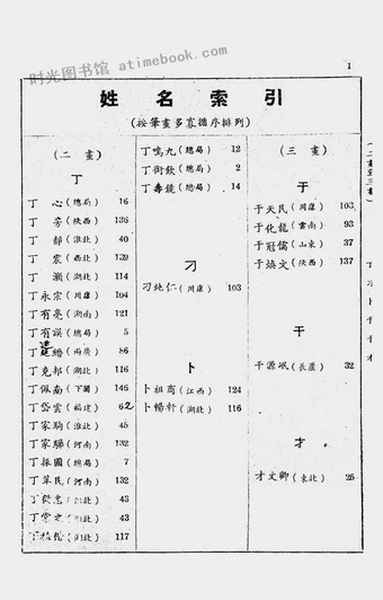 时光图书馆 atimebook.com
1
姓名索引
(按筆畫多寡循序排列)
(二畫)
丁
丁 心(總局) 16
丁 芳(陝西)
丁 靜(淮北) 40
丁 震(西北) 139
丁 灝(湖北) 114
丁永宗(川康) 104
丁有亮(湖南) 121
丁有誤(總局) 5
繒(兩廣) 86
丁克邦(湖北) 116
丁佩南(下關) 146
丁岱雲(福建) 62
丁家駒(淮北) 45
丁家驊(河南) 132
丁振國(總局) 7
丁萃民(河南) 132
43
43
117
丁鳴九(總局) 12
丁術欽(總局) 2
丁壽鏡(總局) 14
刁
刁純仁(川康) 103
卜
卜祖商(江西) 124
卜暢軒(湖北) 116
(三畫)
于
于天民(川康) 103
于化龍(雲南) 93
于冠儒(山東) 37
于煥文(陝西) 137
干
干源岷(長蘆) 32
才
才文卿(東北) 25